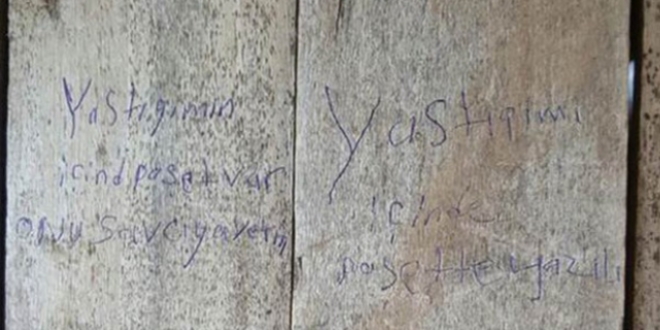 Yastıgımın
içind poşet var
onu Savcıya verin
Yastıgımı
içinde
poşette yazılı